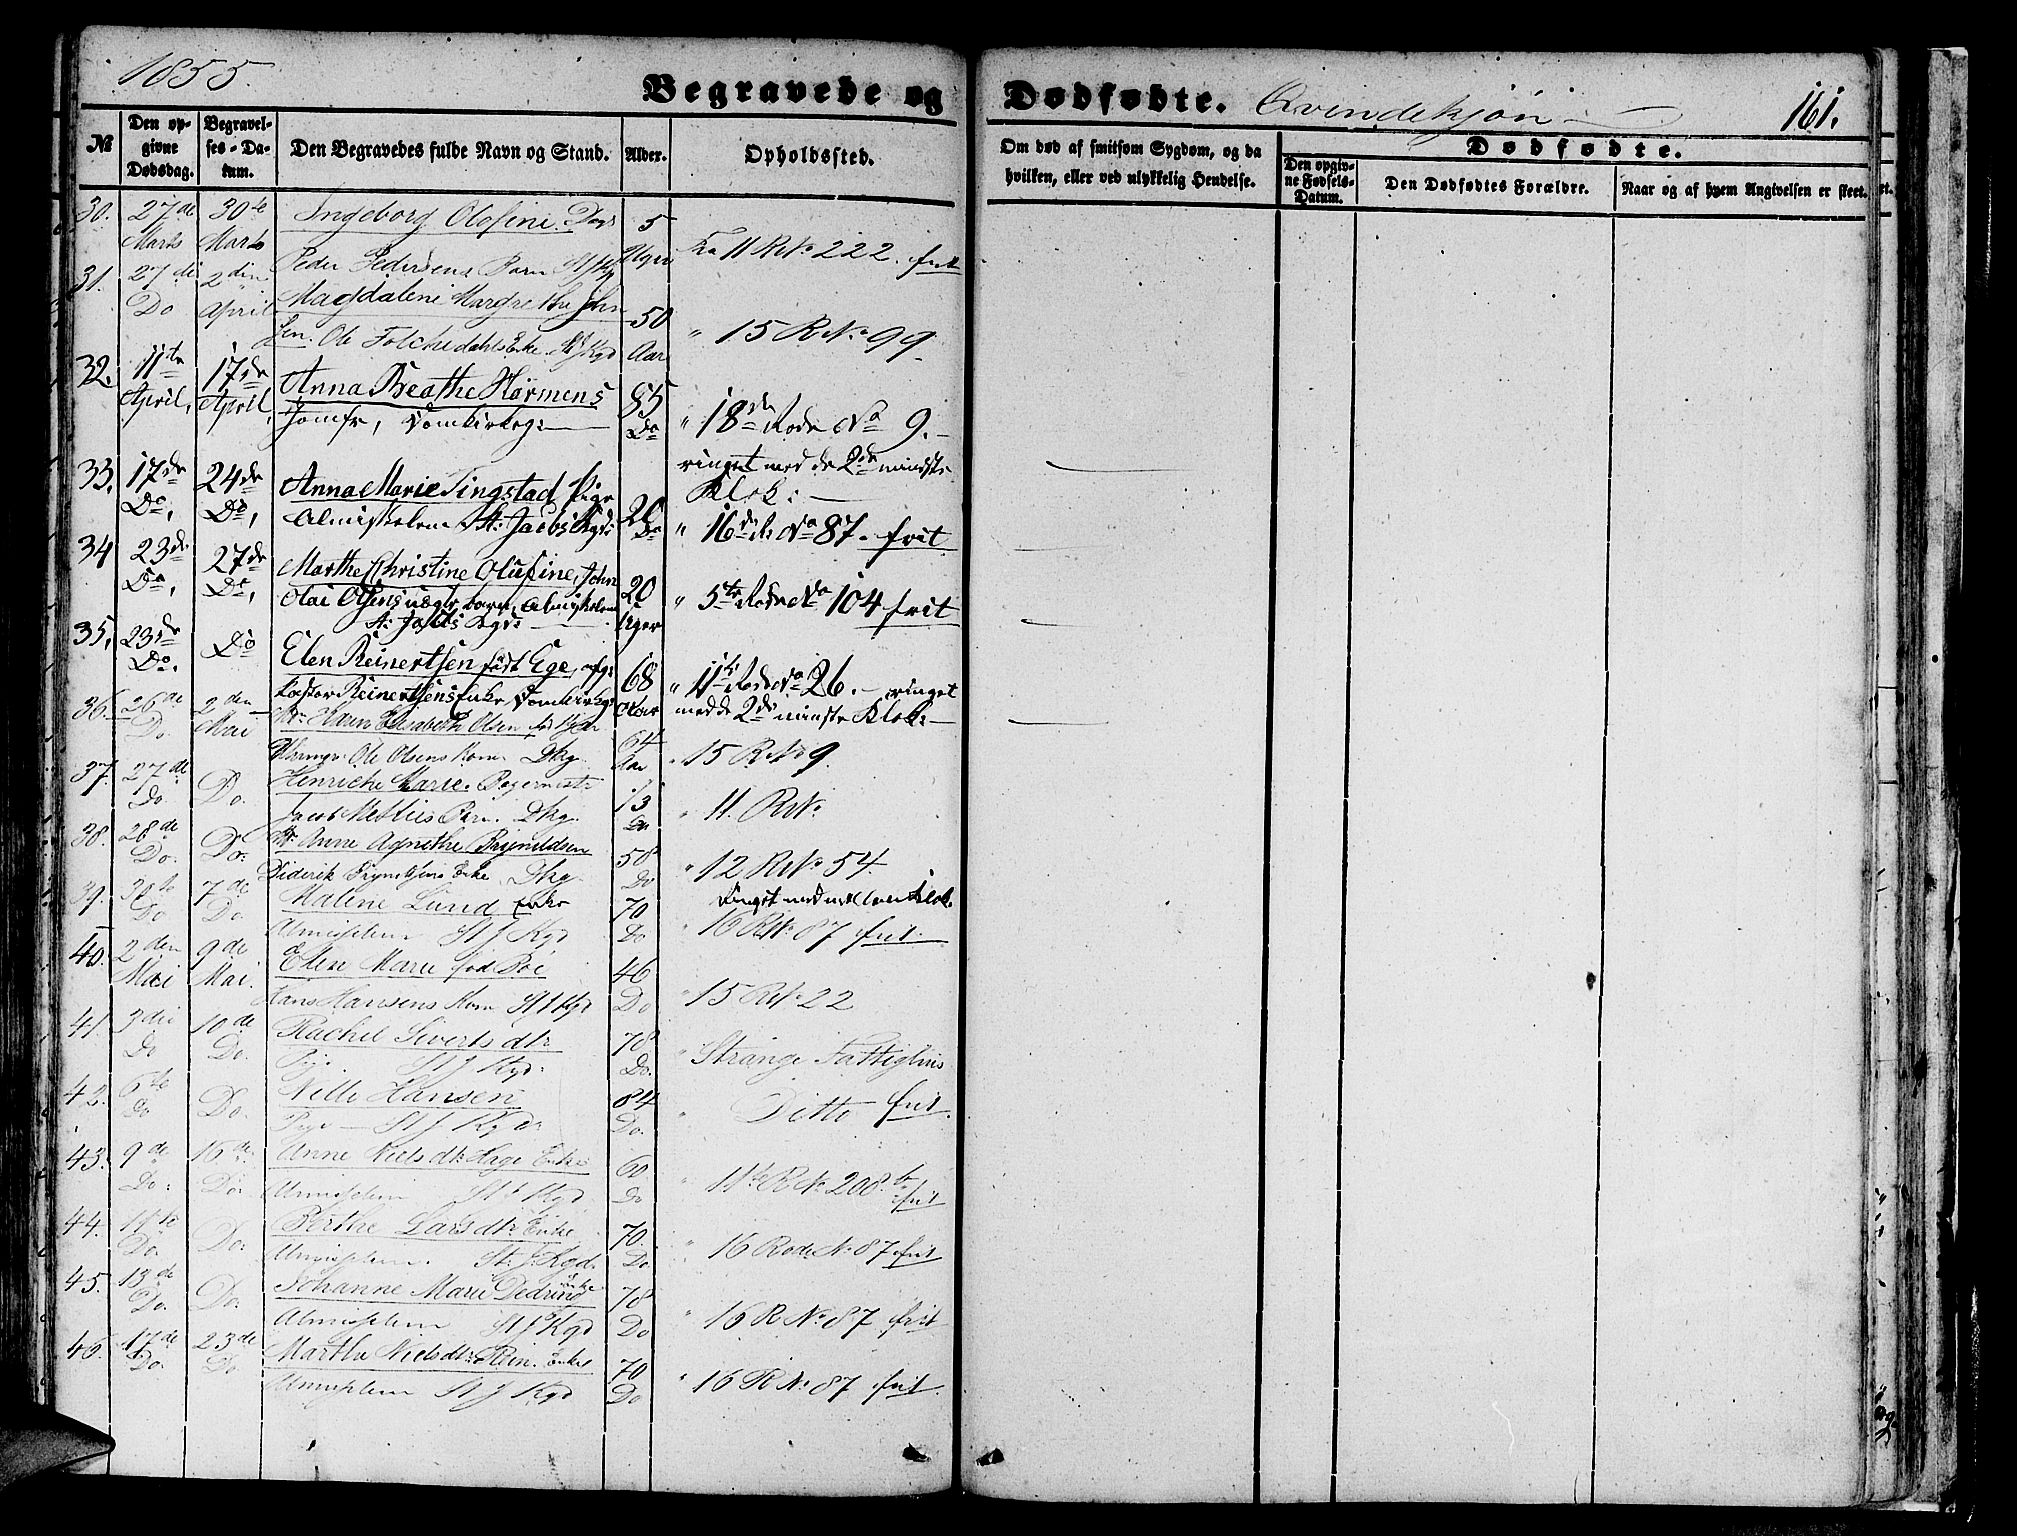 1855.
Begravede og Dødfødte. Qvindekjøn 161.
№
Den opgivne Dødsdag.
Begravelses-Datum.
Den Begravedes fulde Navn og Stand.
Alder.
Opholdssted.
Om død af smitsom Sygdom, og da hvilken, eller ved ulykkelig Hendelse.
Dødfødte.
Den opgivne Fødsels-Datum.
Den Dødfødtes Forældre.
Naar og af hvem Angivelsen er skeet.
30. 27de 30te Ingeborg Olofine 5
Marts Marts Peder Pedersens Barn St J Kg Uger 11 R No 222. frit
31. 27de 2den Magdalene Margrethe John
Do April sen. Ole Folckedahls Enke. St J Kgd 50 Aar " 15 R No 99
32. 11te 17de Anna Beathe Hørmens 85
April, April, Jomfr, Domkirkeg: Do " 18de Rode No 9.
ringet med de 2de mindste
Klok:
33. 17de 24de Anna Marie Tingstad, Pige 20
Do, Do, Almisselem St: Jacobs Kgd: Do " 16de R No 87. frit
34 23de 27de Marthe Christine Olufine, John 20
Do, Do, Olai Olsens uægte barn, Almisselem Uger " 5te Rode No 104 frit
St: Jacobs Kgd:
35. 23de Do Elen Reinertsen født Ege, afg: 68
Do. Pastor Reinertsens Enke Domkirkeg: Aar " 11te Rode No 26. ringet
med de 2de minste Klok:
36. 26de 2den Elisabeth Olsen
Do. Mai Ole Olsens Kone Dkg. 64 Aar " 15 R No 9.
37. 27de Do. Henriche Marie.
Do Jacob Barn. Dkg. 13 " 11. R No
38. 28de Do. Anne Agnethe Brynildsen 58
Do. Diderik Enke. Dkg. Do " 12 R No 54.
Ringet med Klok.
39. 30te 7de Malene Lund Enke 70
Do Do. Almisselem St J Kgd Do " 16 R No 87 frit.
40. 2den 9de Elen Marie fød Bøe 46
Mai Mai. Hans Hansens Kone St J Kgd Do " 15 R No 22
41. 3die 10de Rachel Siverts dtr 78
Do Do. Pige. St J Kgd. Do. " Strange Fattighus
42. 6te Do. Nille Hansen 84
Do Pige St J Kgd. Do. " Ditto frit.
43. 9de 16de Anne Niels dtr Hage Enke 60
Do. Do. Almisselem St J Kgd. Do " 11te R No 208. frit
44. Do. Birthe Lars dtr Enke 70.
Do. Almisselem. St. J. Kgd. Do " 16 Rode No 87 frit
45. 13de Do. Johanne Marie Enke 78
Do. Almisselem St J Kgd Do " 16 R No 87 frit
46. 17de 23de Marthe Niels dtr Enke 70
Do. Do Almisselem St J Kgd Do " 16 R No 87 frit.